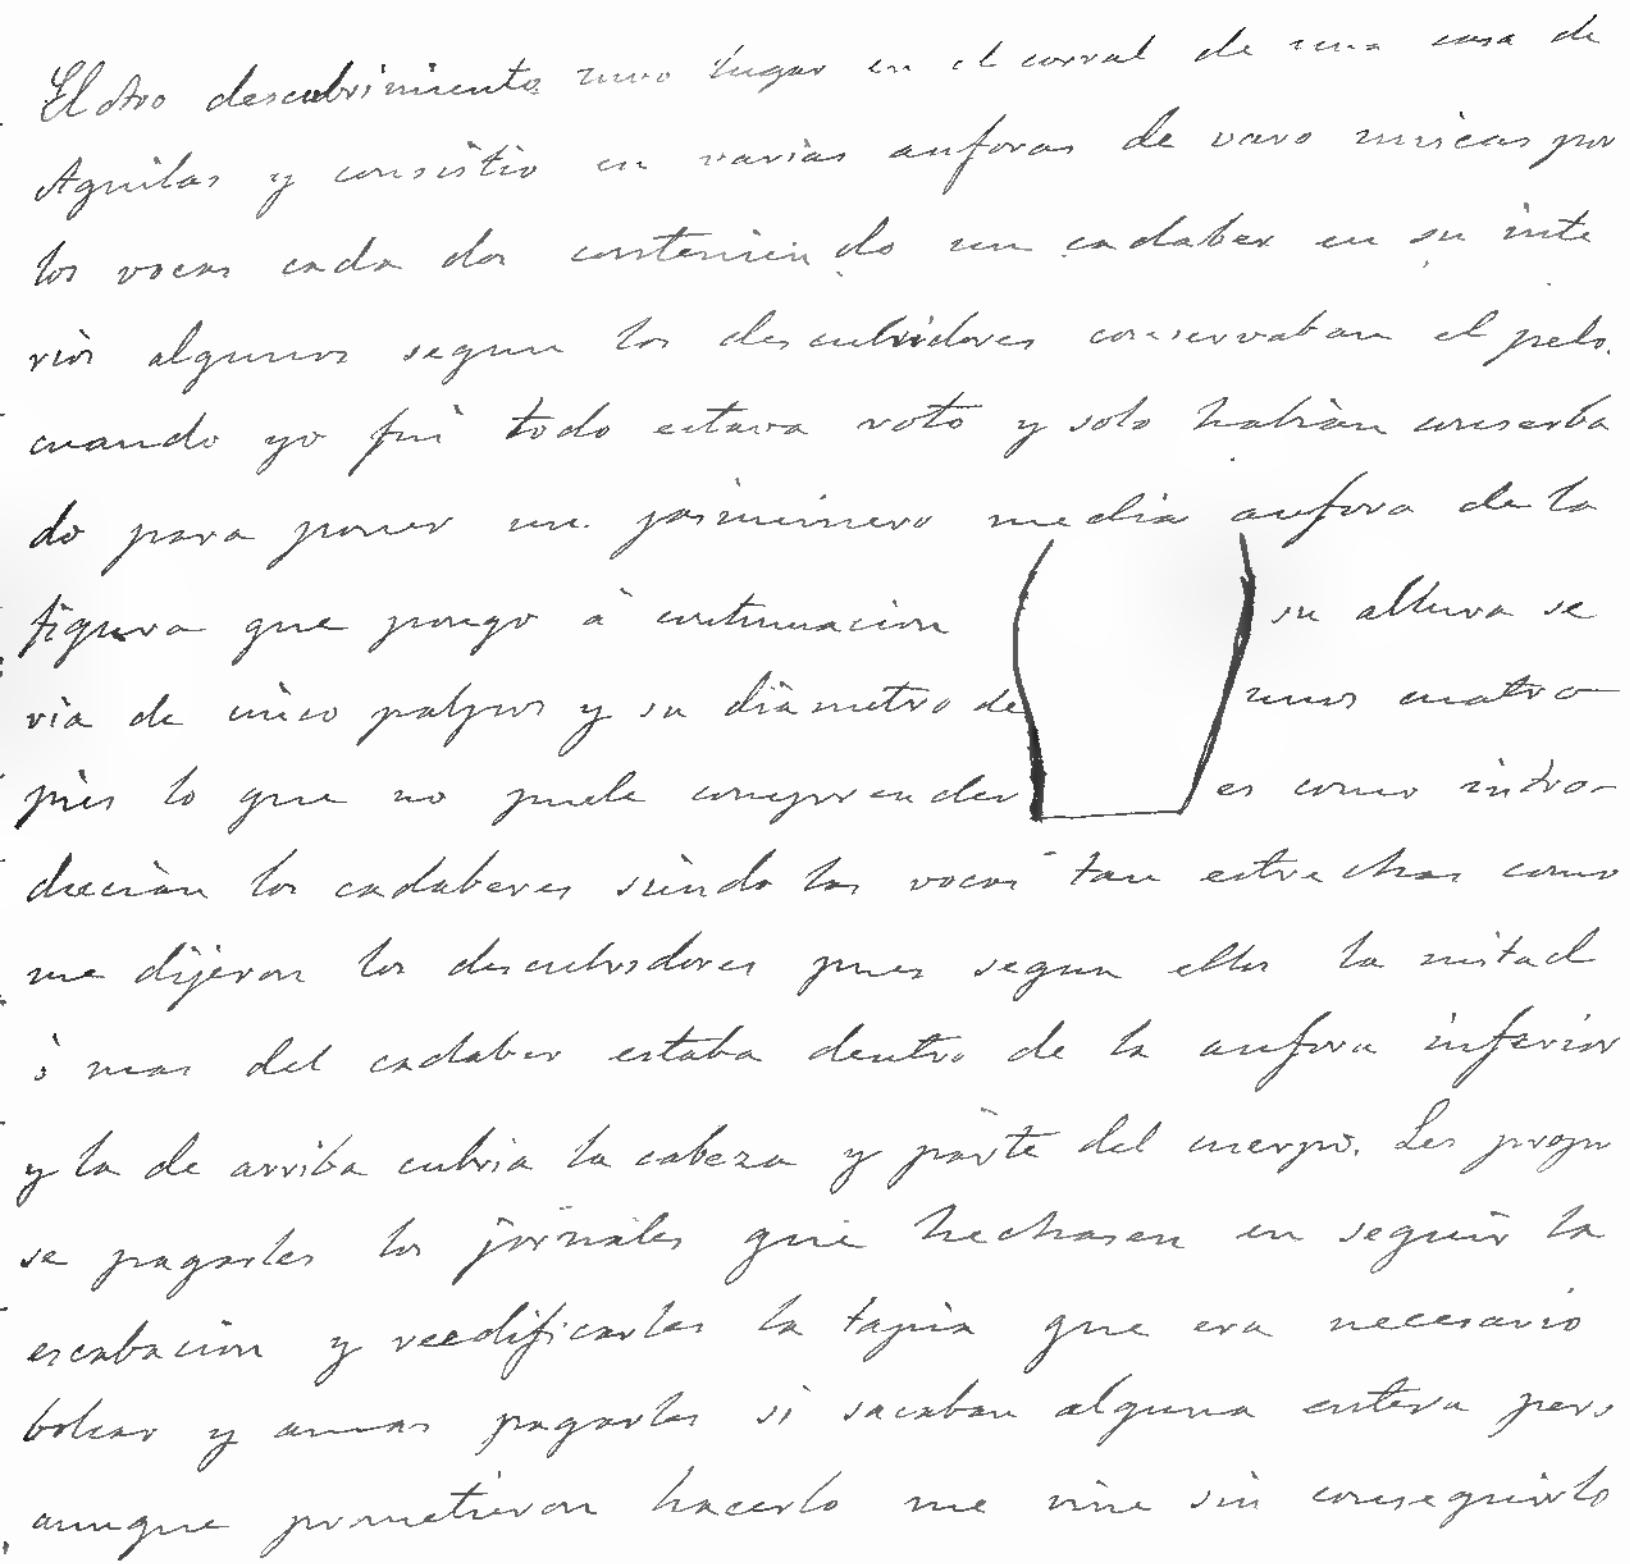 El otro descubrimiento tuvo lugar en el corral de una casa de
Aguilas y consistio en varias anforas de varo unicas por
los vocas cada dos conteniendo un cadaber en su inte
rior algunos segun los descubridores conservaban el pelo.
cuando yo fui todo estava roto y solo habian conserba
do para poner un jasminero media anfora de la
figura que pongo á continuacion su altura se
ria de cinco palmos y su diametro de unos cuatro
pies lo que no puede comprender es como intro-
ducian los cadaberes siendo las vocas tan estrechas como
me dijeron los descubridores pues segun ellos la mitad
ó mas del cadaber estaba dentro de la anfora inferior
y la de arriba cubria la cabeza y parte del cuerpo. Les propu
se pagarles los jornales que hechasen en seguir la
escabacion y reedificarles la tapia que era necesario
bolcar y amas pagarles si sacaban alguna entera pero
aunque prometieron hacerlo me vine sin conseguirlo